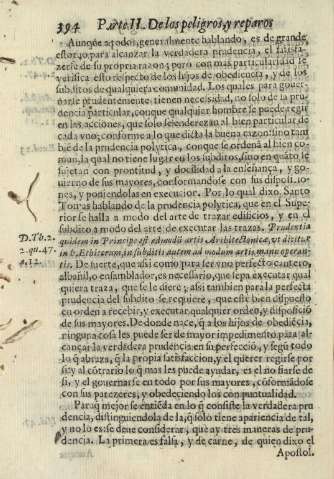 394 Parte II. De los peligros, y reparos
Aunque a todos, generalmente hablando, es de grande
estoruo para alcanzar la verdadera prudencia, el satisfa-
zerse de su propria razon; pero con mas particularidad se
verifica esto respecto de los hijos de obediencia, y de los
subditos de qualquiera comunidad. Los quales para gouer-
narse prudentemente, tienen necessidad, no solo de la pru
dencia particular, con que qualquier hombre se puede regir
en las acciones, que solo se enderezan al bien particular de
cada vno; conforme a lo que dicta la buena razon; sino tam
biē de la prudencia polytica, conque se ordenā al bien co-
mun, la qual no tiene lugar en los subditos, sino en quāto se
sujetan con prontitud, y docilidad a la enseñança, y go-
uierno de sus mayores, conformandose con sus disposicio-
nes, y poniendolas en execucion. Por lo qual dixo Santo
Tomas hablando de la prudencia polytica, que en el Supe-
rior se halla a modo del arte de trazar edificios, y en el
subdito a modo del arte de executar las trazas. Prudentia
D.Th.2. quidem in Principe est ad modū artis Architectonicæ, vt dicitur
2.qu.47. in 6. Ethicorum, in subditis autem ad modum artis manu operan-
a.12. tis. De suerte, que assi como para ser vno perfecto cantero,
albañil, o ensamblador, es necessario, que sepa executar qual
quiera traza, que se le diere; assi tambien para la perfecta
prudencia del subdito se requiere, que estè bien dispuesto
en orden a recebir, y executar qualquier orden, y disposiciō
de sus mayores. De donde nace, q̄ a los hijos de obediēcia,
ninguna cosa les puede ser de mayor impedimento para al-
cançar la verdadera prudencia en su perfecciō, y segū todo
lo q̄ abraza, q̄ la propia satisfaccion, y el querer regirse por
si; y al cōtrario lo q̄ mas les puede ayudar, es el no fiarse de
si, y el gouernarse en todo por sus mayores, cōformādose
con sus pareceres, y obedeciendolos con puntualidad.
Para q̄ mejor se entiēda en lo q̄ consiste la verdadera pru
dencia, distinguiendola de la q̄ solo tiene apariencia de tal,
y no lo es: se deue considerar, que ay tres maneras de pru-
dencia. La primera es falsa, y de carne, de quien dixo el
Apostol.